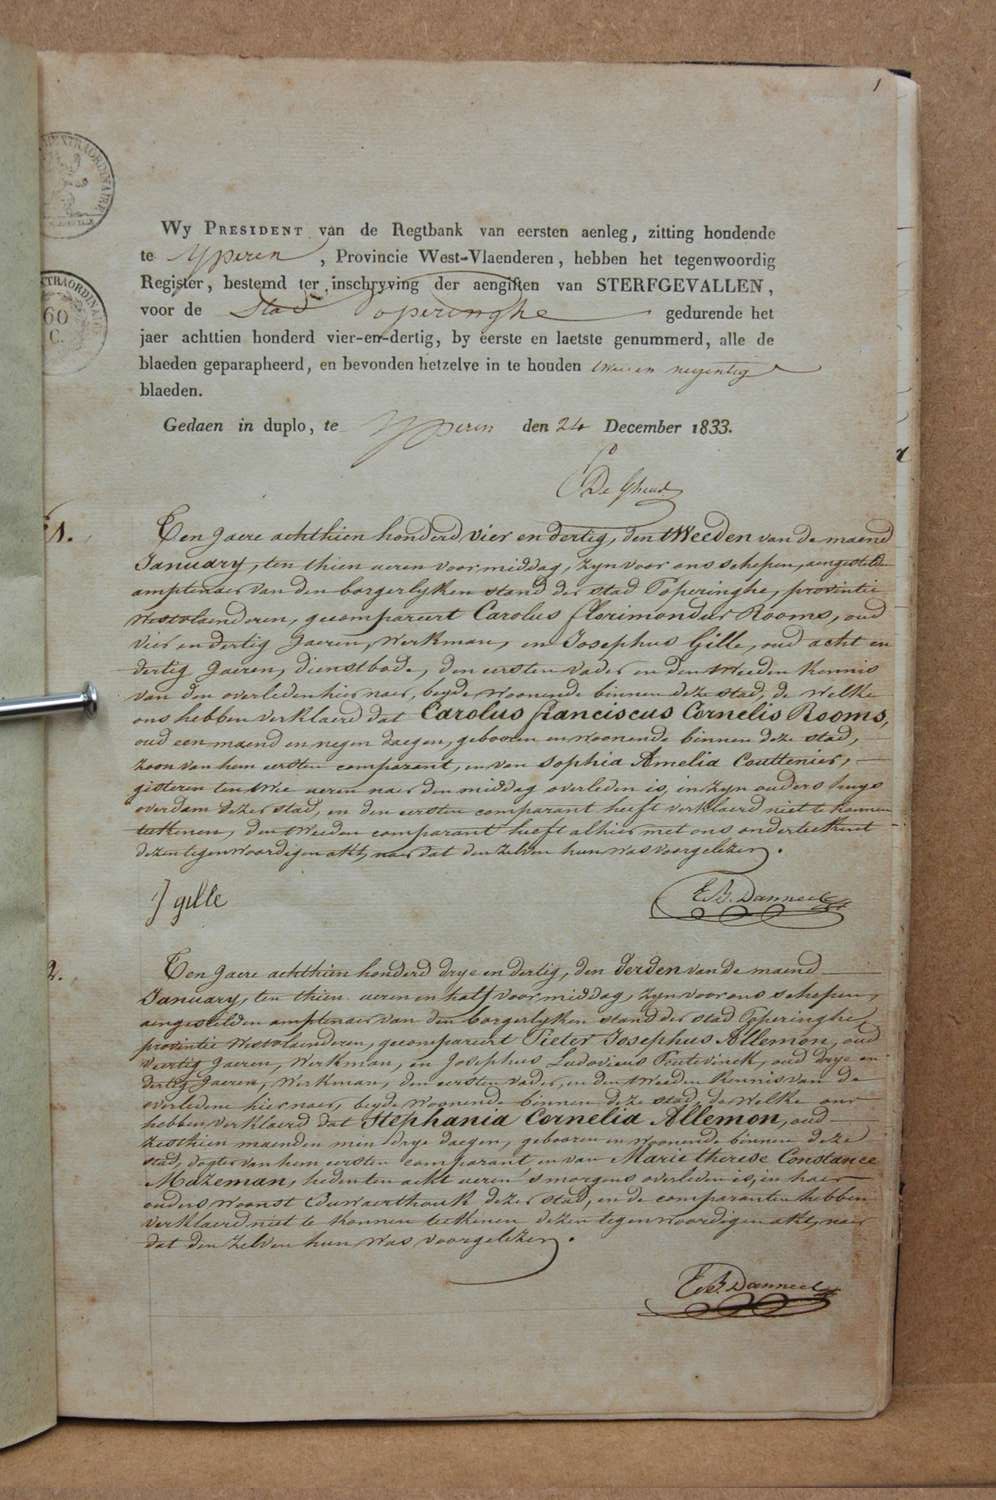 1
EXTRAORDINAIRE
EXTRAORDINAIRE
60
C.
Wy PRESIDENT van de Regtbank van eersten aenleg, zitting hondende
te Yperen, Provincie West-Vlaenderen, hebben het tegenwoordig
Register, bestemd ter inschryving der aengiften van STERFGEVALLEN,
voor de Stad Poperinghe gedurende het
jaer achttien honderd vier-en-dertig, by eerste en laetste genummerd, alle de
blaeden geparapheerd, en bevonden hetzelve in te houden twee en negentig
blaeden.
Gedaen in duplo, te Yperen den 24 December 1833.
De Gheus
1.
Ten Jaere achthien honderd vier en dertig, den tWeeden van de maend
January, ten thien ueren voormiddag, zyn voor ons schepen, aengestelde
amptenaer van den borgerlyken stand der stad Poperinghe, provintie
Westvlaenderen, gecompareert Carolus Florimondus Rooms, oud
vier en dertig Jaeren, Werkman, en Josephus Gille, oud acht en
dertig Jaeren, dienstbode, den eersten vader en den tWeeden Kennis
van den overleden hier naer, beyde Woonende binnen deze stad, de Welke
ons hebben verklaerd dat Carolus franciscus Cornelis Rooms,
oud een maend en negen daegen, gebooren en woonende binnen deze stad,
zoon van hem eersten comparant, en van Sophia Amelia Couttenier,
gisteren ten tWie ueren naer den middag overleden is, in zyn ouders huys
overdam dezer stad, en den eersten comparant heeft verklaerd niet te konnen
teekenen, den tWeeden comparant heeft alhier met ons onderteekent
dezen tegenwoordigen akt, naer dat den zelven hun was voorgelezen.
J gille
E B. Danneel
2.
Ten Jaere achthien honderd drye en dertig, den derden van de maend
January, ten thien ueren en half voormiddag, zyn voor ons schepen,
aengestelden amptenaer van den borgerlyken stand der stad Poperinghe,
provintie Westvlaenderen, gecompareert Pieter Josephus Allemon, oud
veertig Jaeren, Werkman, en Josephus Ludovicus Pentevinck, oud drye en
dertig Jaeren, Werkman, den eersten vader, en den tWeeden Kennis van de
overledene hier naer, beyde Woonende binnen deze stad, de Welke ons
hebben verklaerd dat Stephania Cornelia Allemon, oud
zesthien maenden min drye daegen, gebooren en Woonende binnen deze
stad, dogter van hem eersten comparant en van Marie therese Constance
Mazeman, heden ten acht ueren 's morgens overleden is, in haer
ouders Woonst dezer stad, en de comparanten hebben
verklaerd niet te konnen teekenen dezen tegenwoordigen akt, naer
dat den zelven hun Was voorgelezen.
E B. Danneel